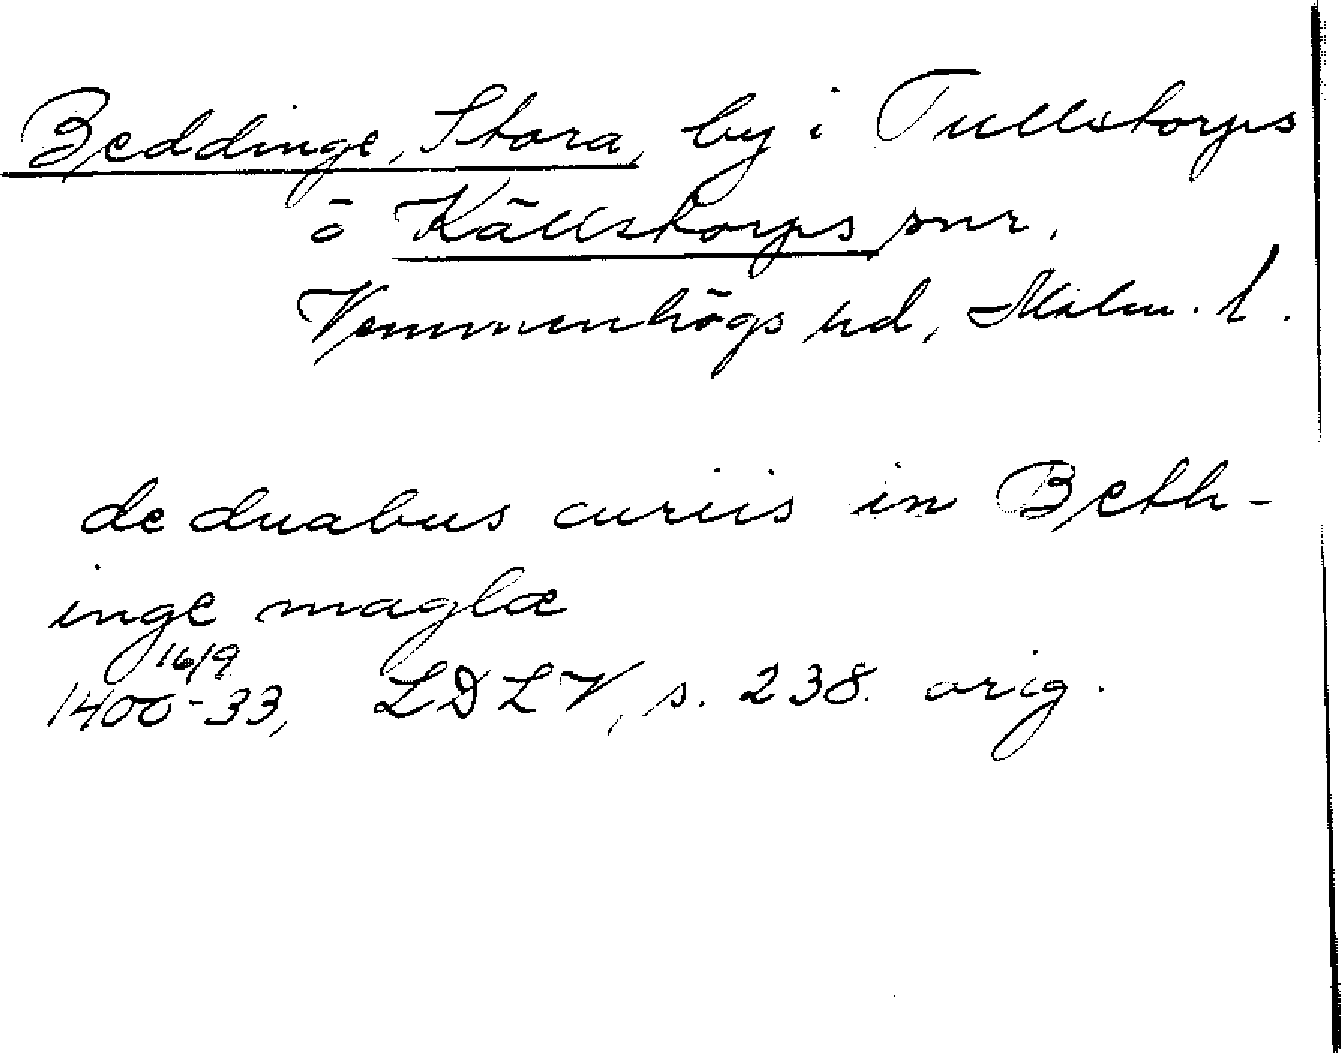 Beddinge, Stora, by i Tullstorps
o Källstorps snr.
Vemmenhögs hd, Malm. l.
de duabus curiis in Beth-
inge maglæ
16/9
1400-33, LDLV, s. 238. orig.